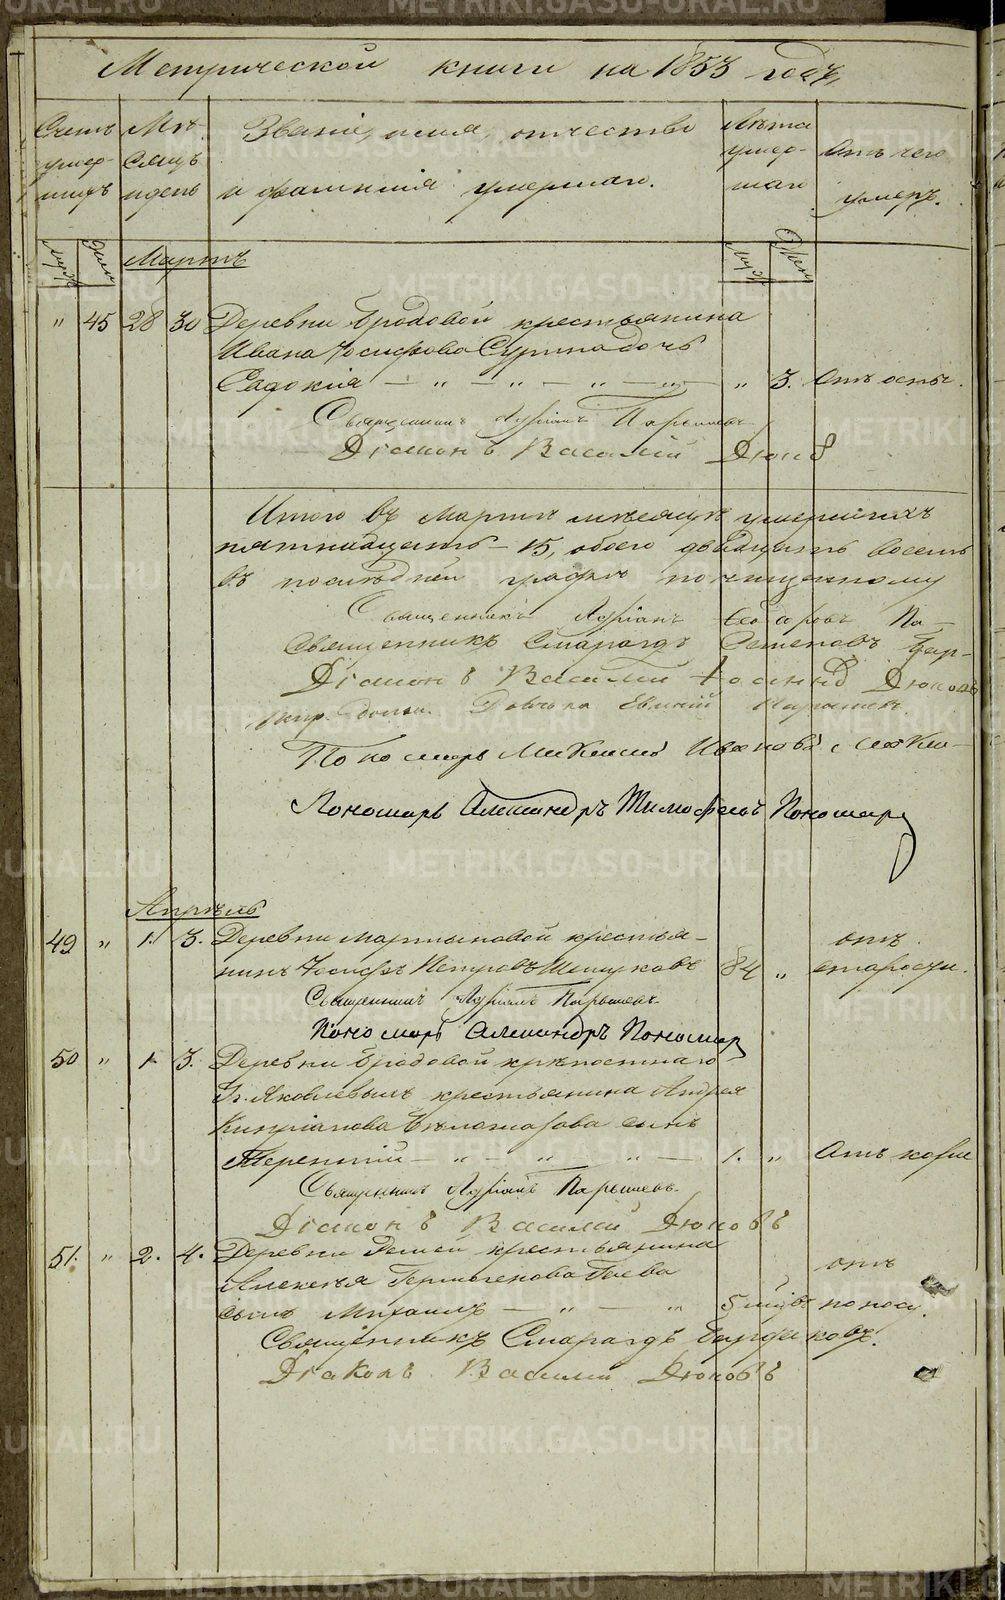 Метрической книги на 1853 годъ,
Счетъ умер- шихъ
Мѣ- сяцъ и день
Званіе, имя, отчество и фамилія умершаго.
Лѣта умер- шаго
Отъ чего умеръ.
Муж. Жен.
Муж. Жен.
Мартъ
" 45 28 30 Деревни Бродовой крестьянина
Ивана Іосифова дочь
Евдокія — " — " — " — " — " 3. Отъ оспы.
Священникъ Адріанъ Парышевъ
Діаконъ Василій Дюковъ
Итого въ Мартѣ мѣсяцѣ умершихъ
пятнадцать – 15, обоего двадцать восемь
въ послѣдней графѣ по чищенному
Священникъ Адріанъ Па-
Священникъ Смарагдъ
Діаконъ Василій Дюковъ
Евмній
Пономарь Иванова
Пономарь Александръ Тимофеевъ Пономарѣ
Апрѣль
49 " 1. 3. Деревни Мартыновой крестья-
нинъ Іосифъ Петровъ 84 " отъ старости.
Священникъ Адріанъ Парышевъ
Пономарь Александръ Пономар
50 " 1 3. Деревни Бродовой крѣпостнаго
Г. Яковлевыхъ крестьянина Андрея
Кипріанова сынъ
Терентій — " — " " — 1. " Отъ кори
Священникъ Адріанъ Парышевъ.
Діаконъ Василій Дюковъ
51. " 2. 4. Деревни крестьянина
Алексѣя Гермогенова отъ
сынъ Михаилъ — " — " 5 мцвъ поносу.
Священникъ Смарагдъ
Діаконъ Василій Дюковъ
METRIKI.GASO-URAL.RU